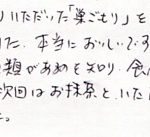 りいただいた「巣ごもり」を
た、本当においしいです
類があるを知り、食
次回はお抹茶といただ
た。